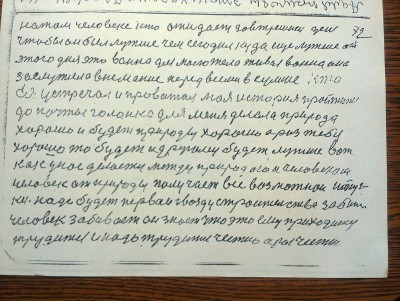 на том человеке кто ожидает завтрешни ден 72
чтобы он был лутше чем сегодня куда ище лутше от
этого дня это воина для моего тела живая воина она
заслужела внемание перед всеми в сумке кто
бы встречал и проважал моя история
до почты головка для меня делала природа
хорошо и будет природу хорошо а раз тебу
хорошо то будет и другому будет лутше вот
как у нас делается между природаю и человекам
человек от природы получает все возможное
надо будет первай гвозд строителства забить
человек забивает он знает что это ему приходицу
трудится и надо трудится честно а раз честно